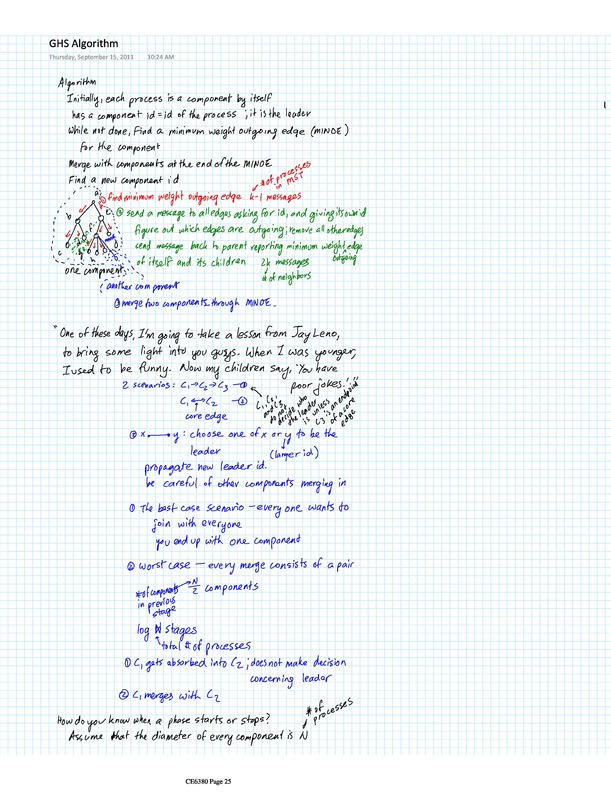 GHS Algorithm
Thursday, September 15, 2011 10:24 AM
1
Algorithm
Initially, each process is a component by itself
has a component id = id of the process ; it is the leader
While not done, Find a minimum weight outgoing edge (MWOE)
for the component
Merge with components at the end of the MWOE
Find a new component id
# of processes
in MST
① find minimum weight outgoing edge k-1 messages
② send a message to all edges asking for id, and giving its own id
figure out which edges are outgoing; remove all other edges
send message back to parent reporting minimum weight edge
outgoing
of itself and its children 2k messages
# of neighbors
a
b
c
one component
another component
③ merge two components through MWOE.
"One of these days, I'm going to take a lesson from Jay Leno,
to bring some light into you guys. When I was younger,
I used to be funny. Now my children say, 'You have
poor jokes.'"
2 scenarios: C₁→C₂→C₃ —①
C₁↔C₂ —②
core edge
C₁, C₂,
and C₃
do not
decide who
the leader
is unless
C₃ is an endpoint
of a core
edge
② x — y : choose one of x or y to be the
leader (larger id)
propagate new leader id.
be careful of other components merging in
① The best case scenario – every one wants to
join with everyone
you end up with one component
② worst case — every merge consists of a pair
# of components
in previous
stage
N/2 components
log N stages
total # of processes
① C₁ gets absorbed into C₂; does not make decision
concerning leader
② C₁ merges with C₂
How do you know when a phase starts or stops?
# of
processes
Assume that the diameter of every component is N
CE6380 Page 25